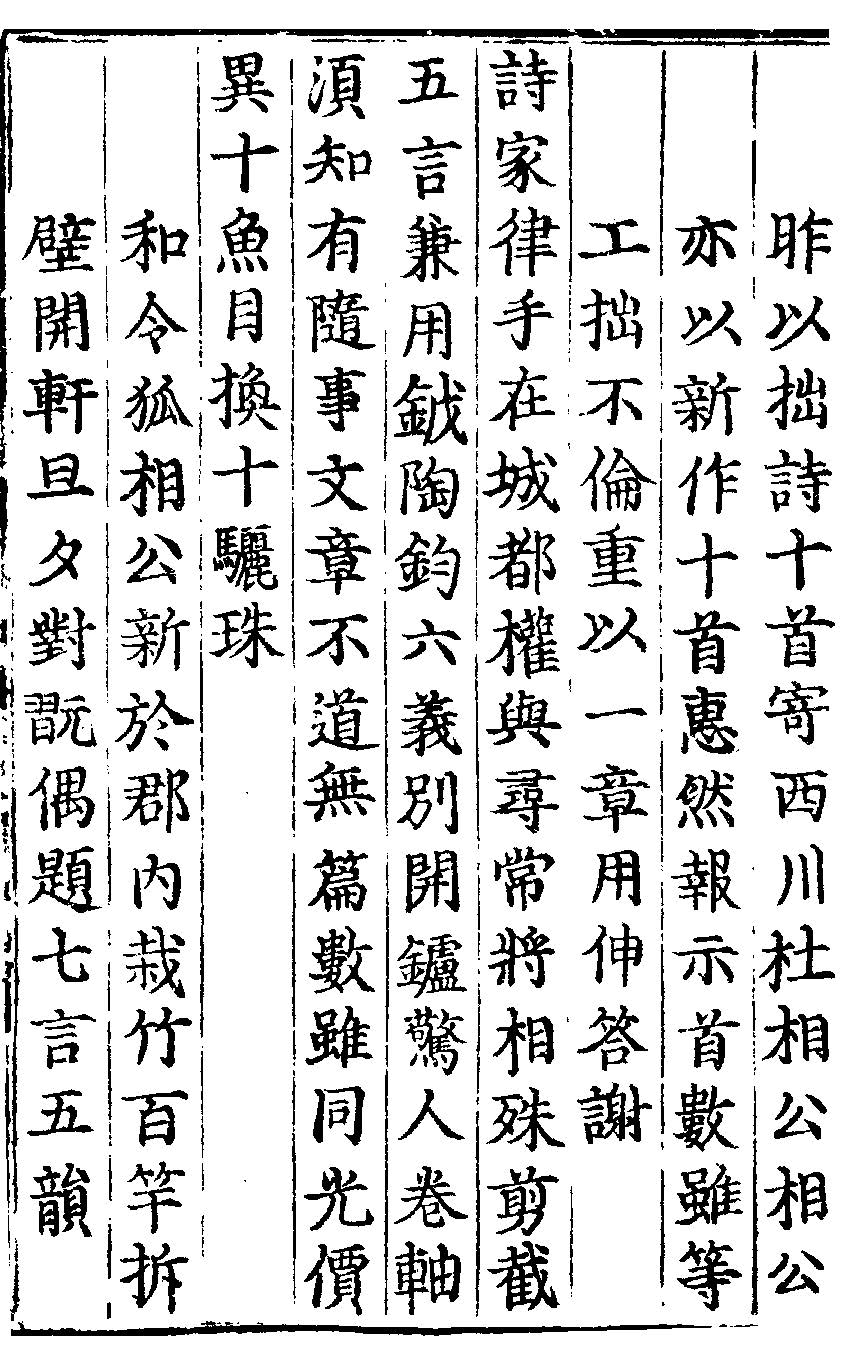 昨以拙詩十首寄西川杜相公相公
亦以新作十首惠然報示首數雖等
工拙不倫重以一章用伸答謝
詩家律手在城都權與尋常將相殊剪截
五言兼用鉞陶鈞六義別開鑪驚人卷軸
須知有隨事文章不道無篇數雖同光價
異十魚目換十驪珠
和令狐相公新於郡內栽竹百竿拆
壁開軒旦夕對翫偶題七言五韻